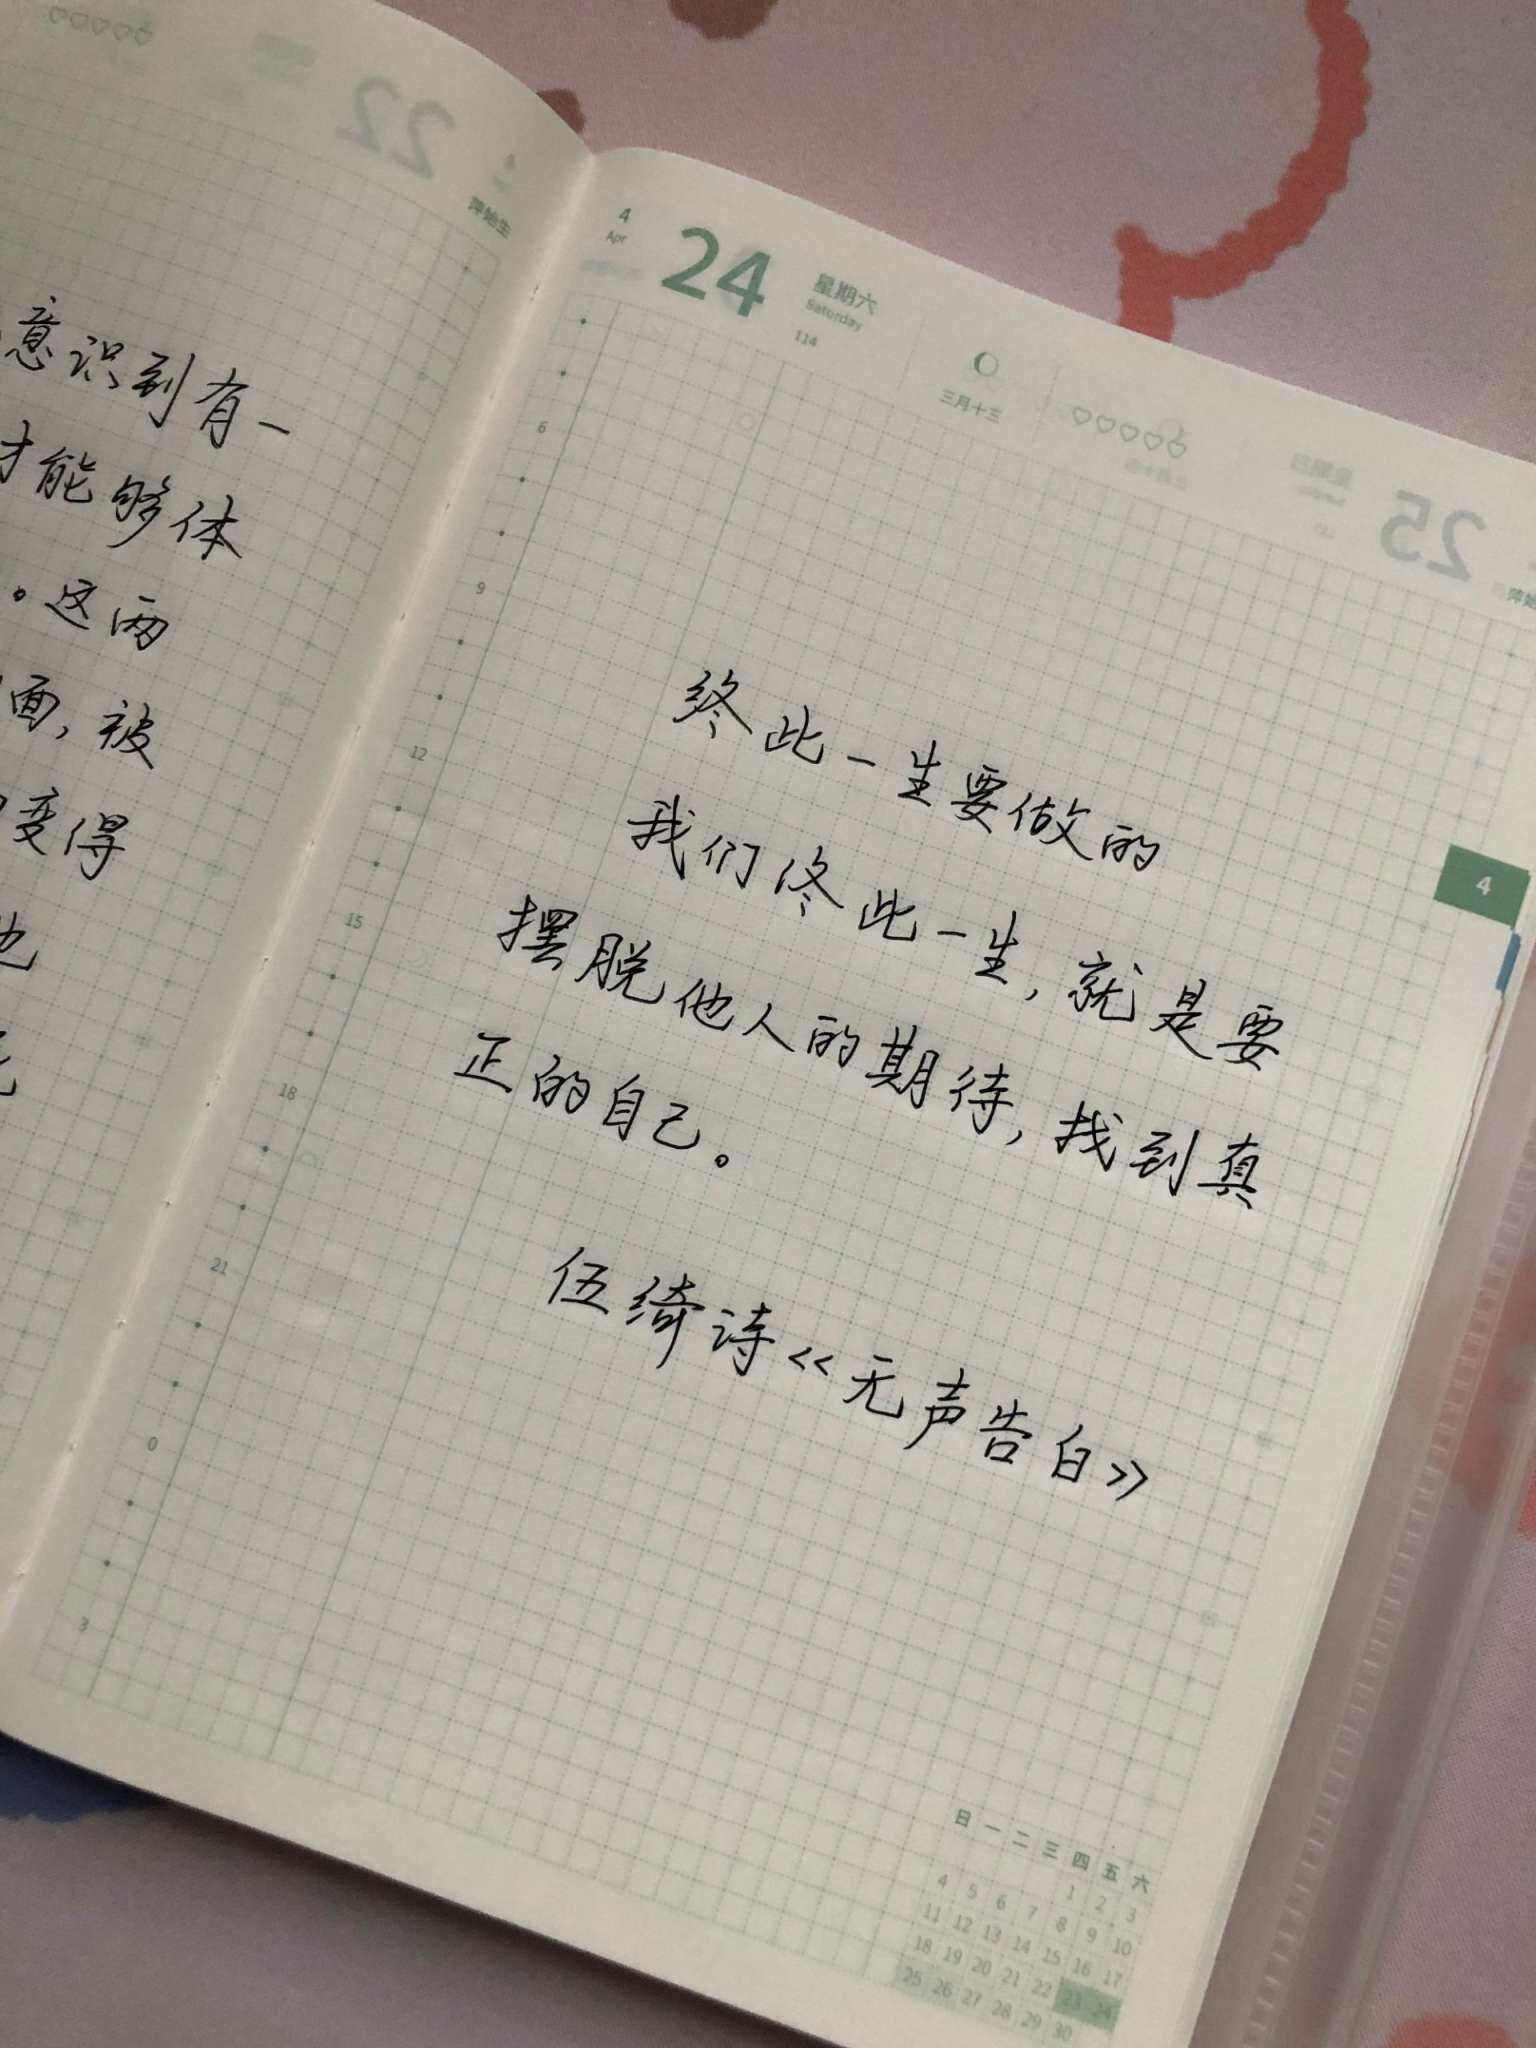 意识到有一
才能够体
。这两
面，被
变得
也
22
4
萍始生
4
Apr
24
星期六
Saturday
114
三月十三
25
6
9
12
15
18
21
0
3
终此一生要做的
我们终此一生，就是要
摆脱他人的期待，找到真
正的自己。
伍绮诗《无声告白》
4
日 一 二 三 四 五 六
1 2 3
4 5 6 7 8 9 10
11 12 13 14 15 16 17
18 19 20 21 22 23 24
25 26 27 28 29 30